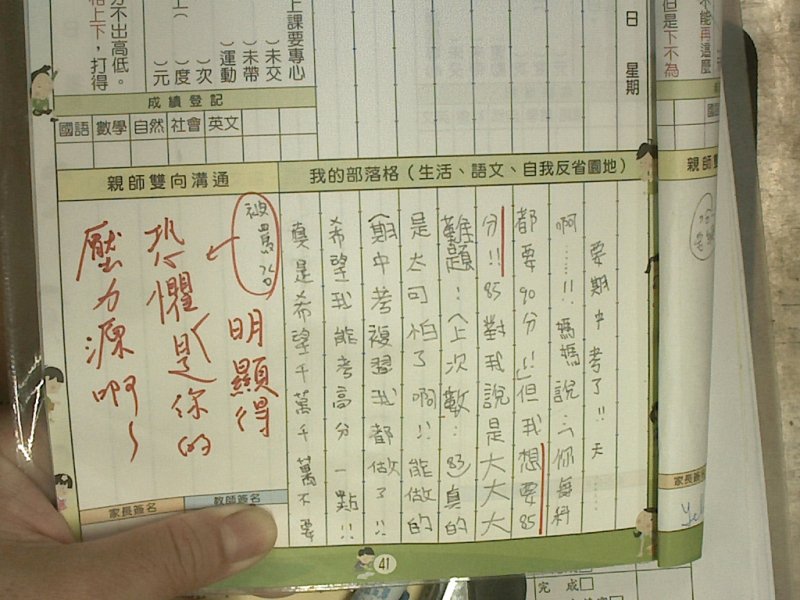 上課要專心
）未交
）未帶
）運動
）次
）度
）元
分不出高低。
格上下，打得
日 星期
不能再這麼
但是下不為
成績登記
國語 數學 自然 社會 英文
親師雙向溝通
我的部落格（生活、語文、自我反省園地）
親師雙
要期中考了!!天
啊……!!媽媽說：「你每科
都要90分!!」但我想要85
分!!85對我說是大大大
難題：（上次數：83）真的
是太可怕了啊!!能做的
（期中考複習我都做了!!
希望我能考高分一點!!
真是希望千萬千萬不要
被罵哈
明顯得
恐懼是你的
壓力源啊～
家長簽名
教師簽名
家長簽
41
完成□